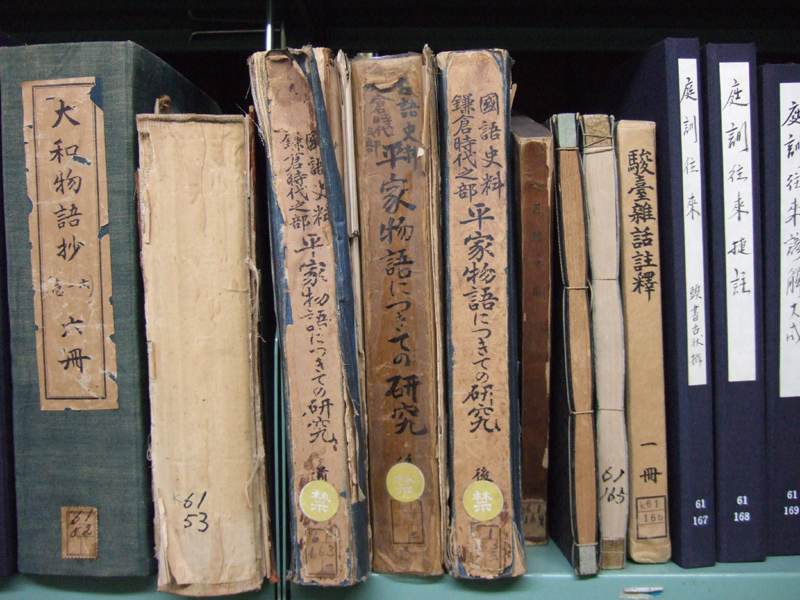 大和物語抄
六冊
61
53
國語史料
鎌倉時代之部
平家物語につきての研究
禁
語史料
倉時代
部
平家物語につきての研究
禁
國語史料
鎌倉時代之部
平家物語につきての研究
後
禁
61
165
駿臺雜話註釋
一冊
61
166
庭訓往来
頭書古状揃
61
167
庭訓往来捷註
61
168
庭訓往来諺解大成
61
169